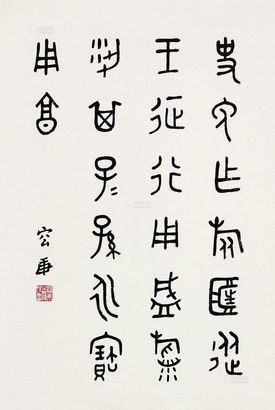 史免乍旅匡從
王征行用盛稻
粱其子子孫孫永寶
用享
容庚